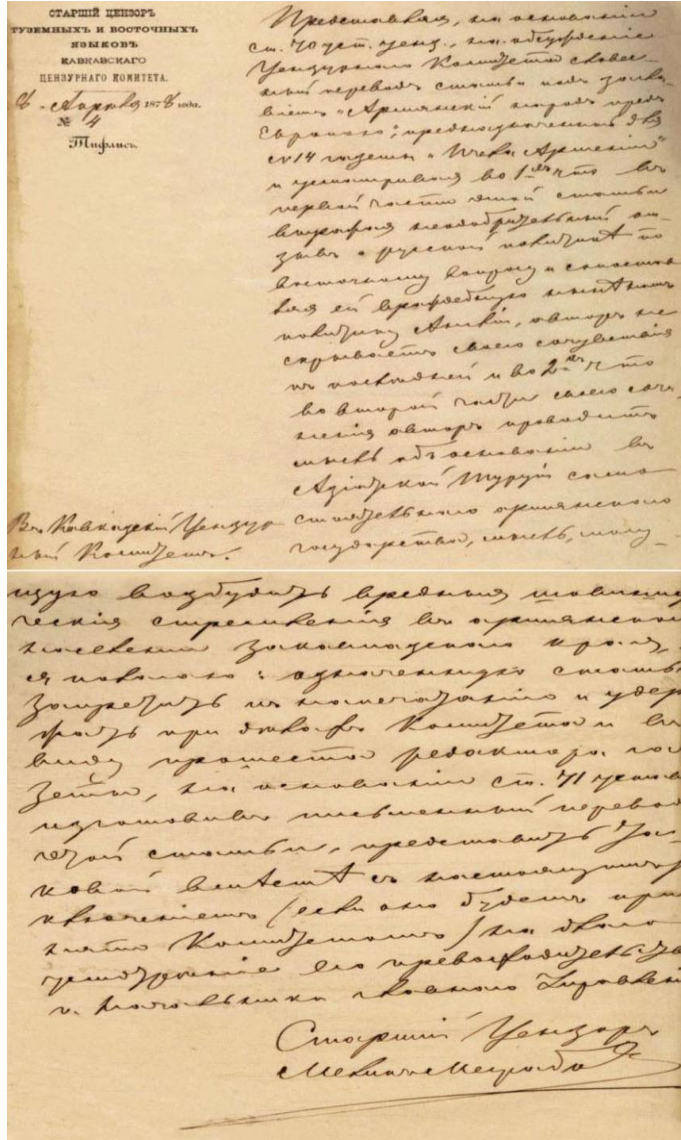 СТАРШІЙ ЦЕНЗОРЪ
ТУЗЕМНЫХЪ И ВОСТОЧНЫХЪ
ЯЗЫКОВЪ
КАВКАЗСКАГО
ЦЕНЗУРНАГО КОМИТЕТА.
8 Апрѣля 1878 года.
№ 4
Тифлисъ.
Въ Кавказскій Цензур
ный Комитетъ.
Представляя, на основаніи
ст. 70 уст. ценз., на обсужденіе
Цензурнаго Комитета словес-
ный переводъ статьи подъ загла-
віемъ „Армянскій народъ предъ
Европою", предназначенной для
№ 14 газеты „Пчела Арменіи"
и усматривая во 1хъ что въ
первой части этой статьи
выражая неодобрительный от-
зывъ о русской политикѣ по
восточному вопросу и сопостав
ляя ей враждебную намъ
политику Англіи, авторъ не
скрываетъ своего сочувствія
къ послѣдней и во 2хъ что
во второй части своего сочи-
ненія авторъ проводитъ
мысль объ основаніи въ
Азіатской Турціи само-
стоятельнаго армянскаго
государства, мысль, могу-
щую возбудить вредныя
ческія стремленія въ армянскомъ
населеніи Закавказскаго края,
я полагалъ: означенную статью
запретить къ напечатанію и удер
жать при дѣлахъ Комитета и въ
виду протеста редактора га
зеты, на основаніи ст. 71 устава
изготовивъ письменный перевод
этой статьи, представить
вмѣстѣ съ настоящимъ
заключеніемъ (если оно будетъ при
нято Комитетомъ) на
усмотрѣніе его превосходительства
г. Начальника Главнаго Управленія
Старшій Цензоръ